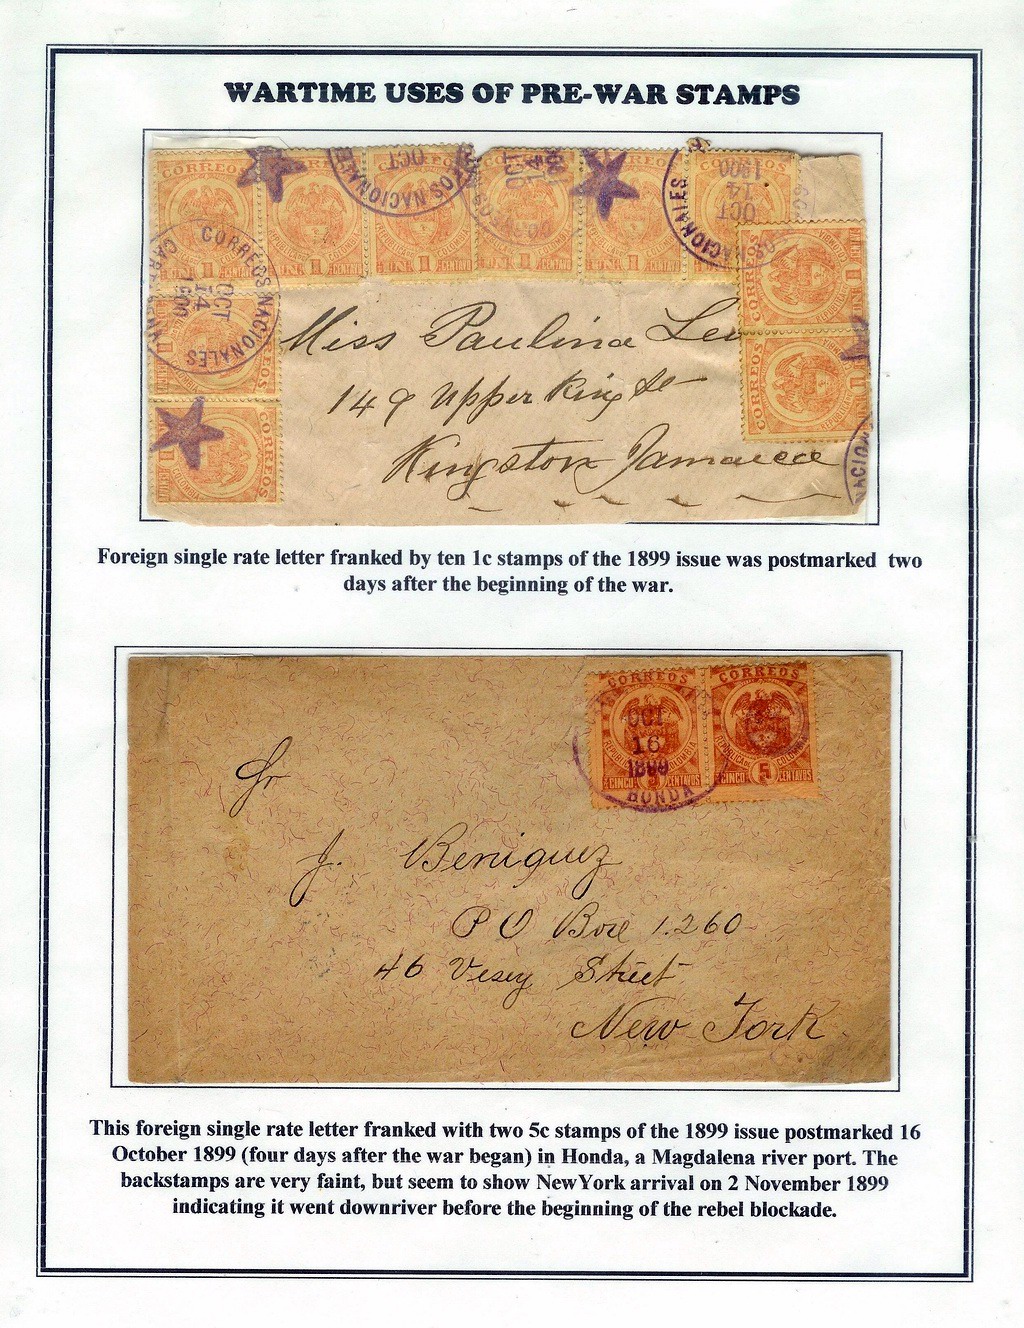 WARTIME USES OF PRE-WAR STAMPS
CORREOS
REPUBLICA DE COLOMBIA
UN 1 CENTAVO
CORREOS NACIONALES
OCT
14
1900
Miss Paulina
149 Upper King St
Kingston Jamaica
Foreign single rate letter franked by ten 1c stamps of the 1899 issue was postmarked two
days after the beginning of the war.
CORREOS CORREOS
REPUBLICA DE COLOMBIA
CINCO 5 CENTAVOS CINCO 5 CENTAVOS
OCT
16
1899
HONDA
Sr
J. Beniquez
P O Box 1.260
46 Vesey Street
New York
This foreign single rate letter franked with two 5c stamps of the 1899 issue postmarked 16
October 1899 (four days after the war began) in Honda, a Magdalena river port. The
backstamps are very faint, but seem to show NewYork arrival on 2 November 1899
indicating it went downriver before the beginning of the rebel blockade.